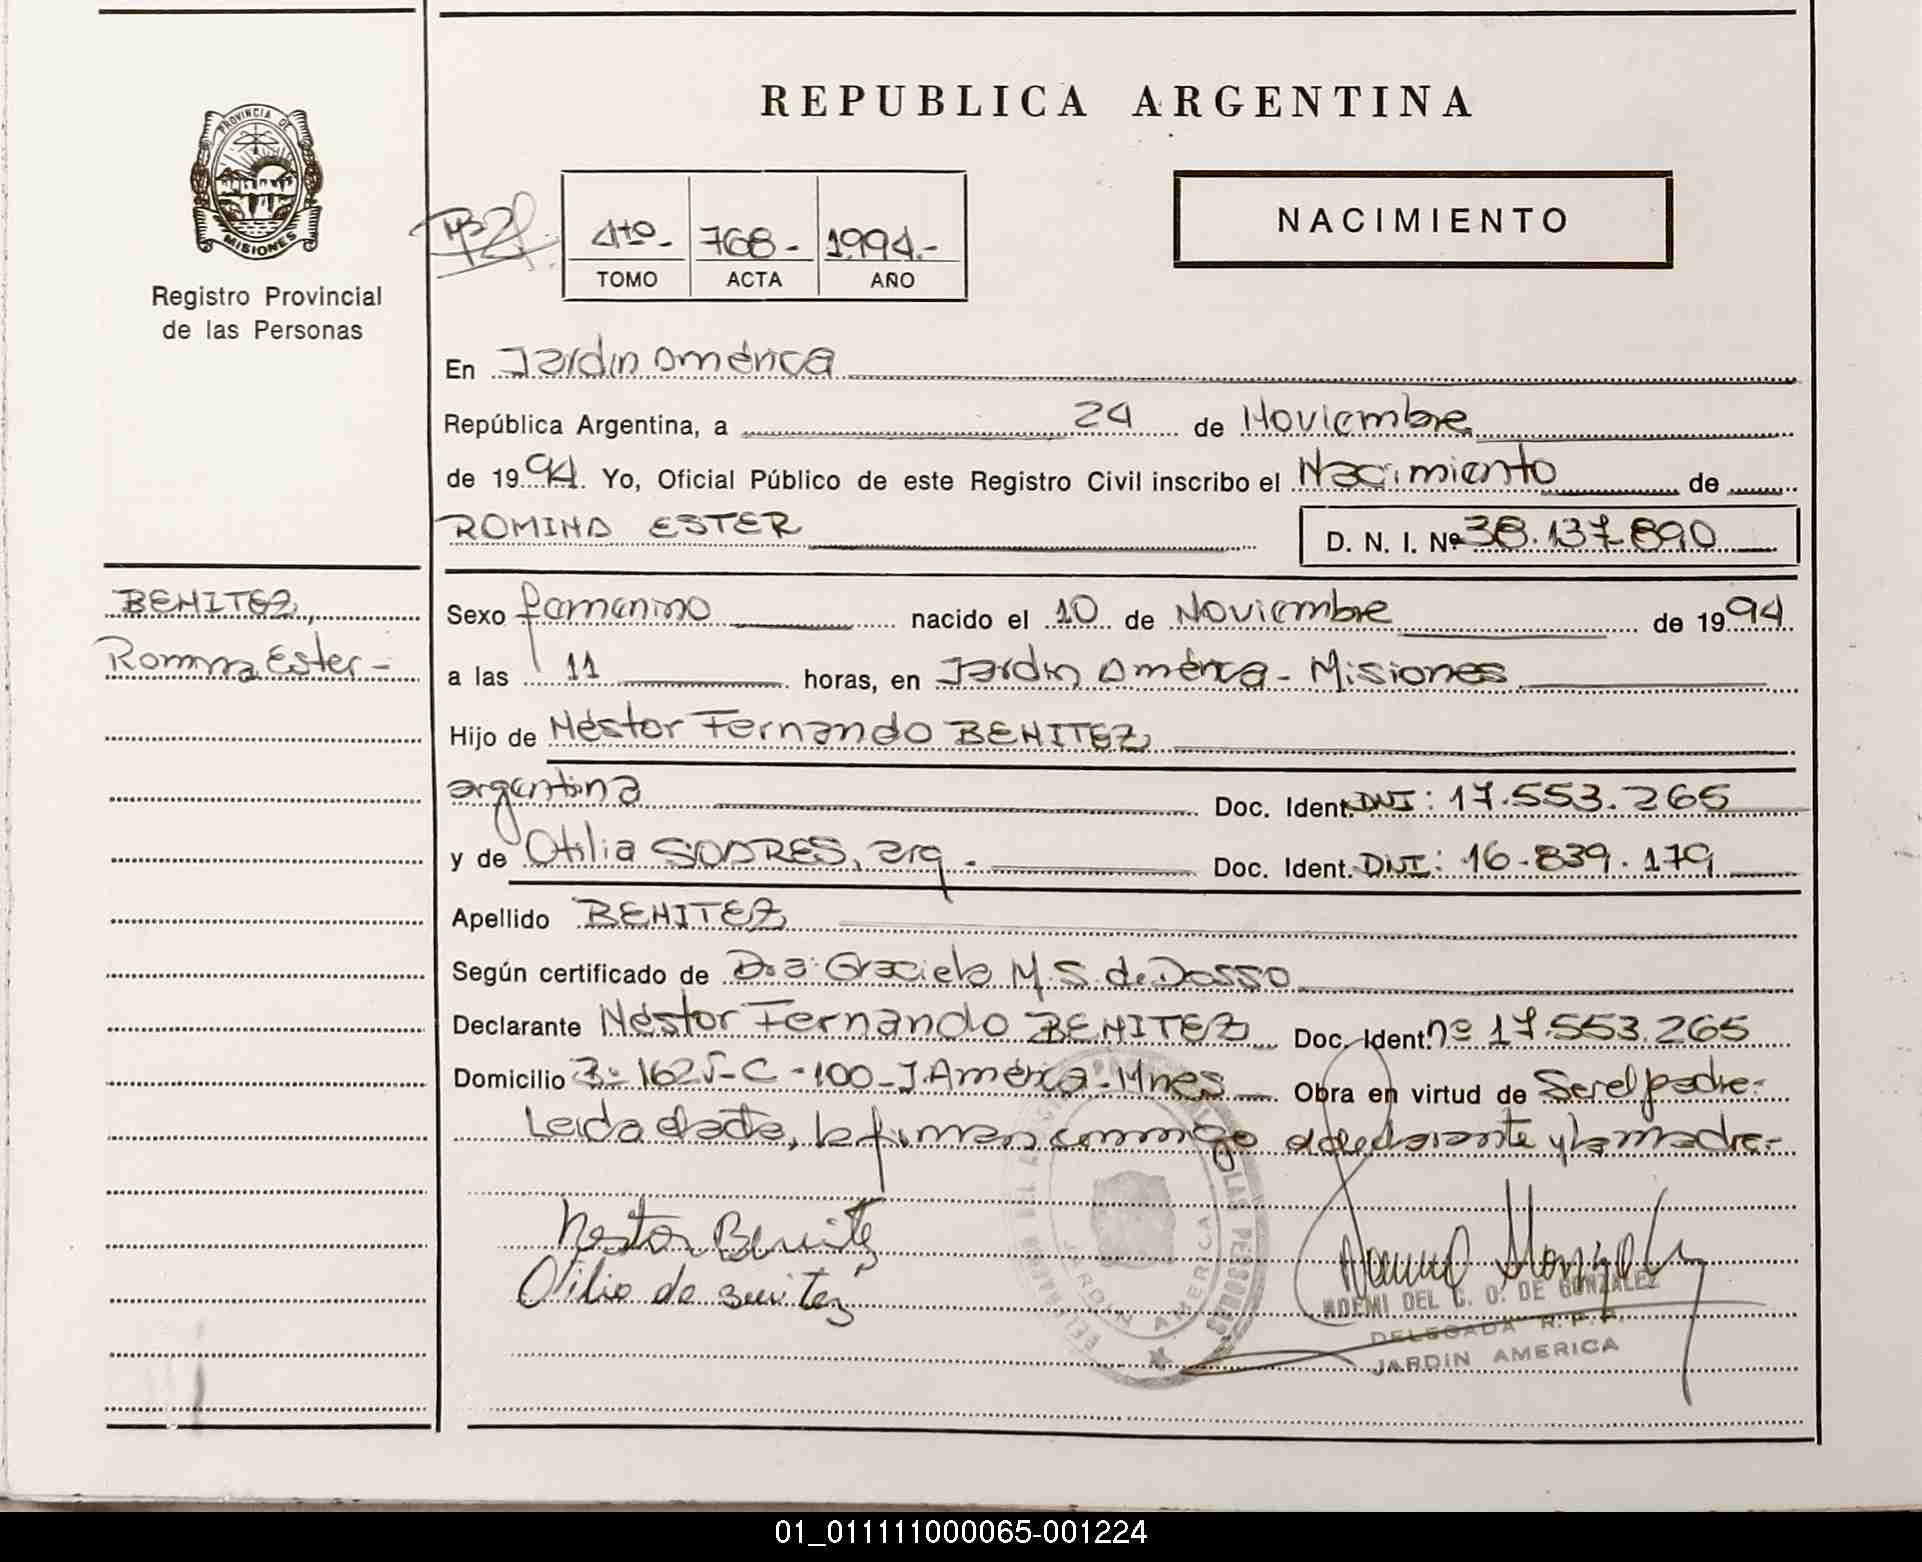 REPUBLICA ARGENTINA
PROVINCIA DE
MISIONES
Registro Provincial
de las Personas
4to.- 768- 1994.-
TOMO ACTA AÑO
NACIMIENTO
En Jardín América
República Argentina, a 24 de Noviembre
de 1994. Yo, Oficial Público de este Registro Civil inscribo el Nacimiento de
ROMINA ESTER D. N. I. Nº 38.137.890
BENITEZ,
Romina Ester-
Sexo femenino nacido el 10 de Noviembre de 1994
a las 11 horas, en Jardín América - Misiones
Hijo de Néstor Fernando BENITEZ
argentina Doc. Ident. DNI: 17.553.265
y de Otilia SOARES, arg. Doc. Ident. DNI: 16.839.179
Apellido BENITEZ
Según certificado de Dra: Graciela M. S. de Dasso
Declarante Néstor Fernando BENITEZ Doc. Ident. nº 17.553.265
Domicilio B: 162 J-C-100-J. América-Mnes Obra en virtud de Ser el padre.-
Leida el acta, la firman conmigo el declarante y la madre.-
Nestor Benitez
Otilia de Benitez
NOEMI DEL C. O. DE GONZALEZ
DELEGADA R. P. P.
JARDIN AMERICA
LAS PERSONAS
JARDIN AMERICA
01_011111000065-001224